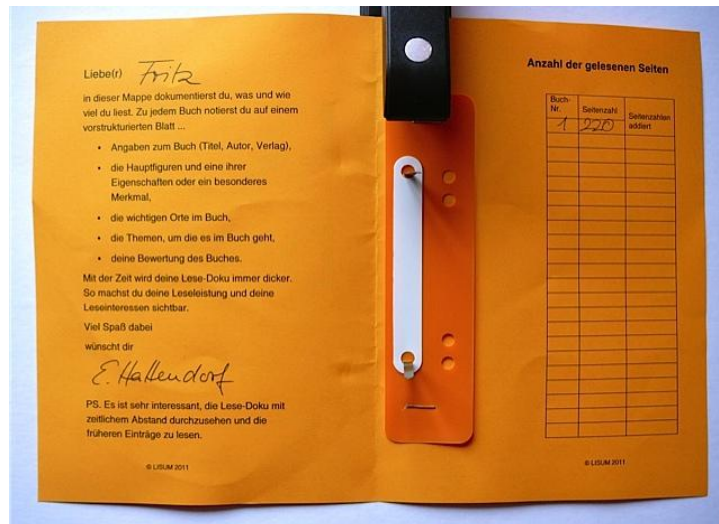 Liebe(r) Fritz
in dieser Mappe dokumentierst du, was und wie
viel du liest. Zu jedem Buch notierst du auf einem
vorstrukturierten Blatt ...
• Angaben zum Buch (Titel, Autor, Verlag),
• die Hauptfiguren und eine ihrer
Eigenschaften oder ein besonderes
Merkmal,
• die wichtigen Orte im Buch,
• die Themen, um die es im Buch geht,
• deine Bewertung des Buches.
Mit der Zeit wird deine Lese-Doku immer dicker.
So machst du deine Leseleistung und deine
Leseinteressen sichtbar.
Viel Spaß dabei
wünscht dir
E. Hattendorf
PS. Es ist sehr interessant, die Lese-Doku mit
zeitlichem Abstand durchzusehen und die
früheren Einträge zu lesen.
© LISUM 2011
Anzahl der gelesenen Seiten
Buch-
Nr.
Seitenzahl
Seitenzahlen
addiert
1 220
© LISUM 2011